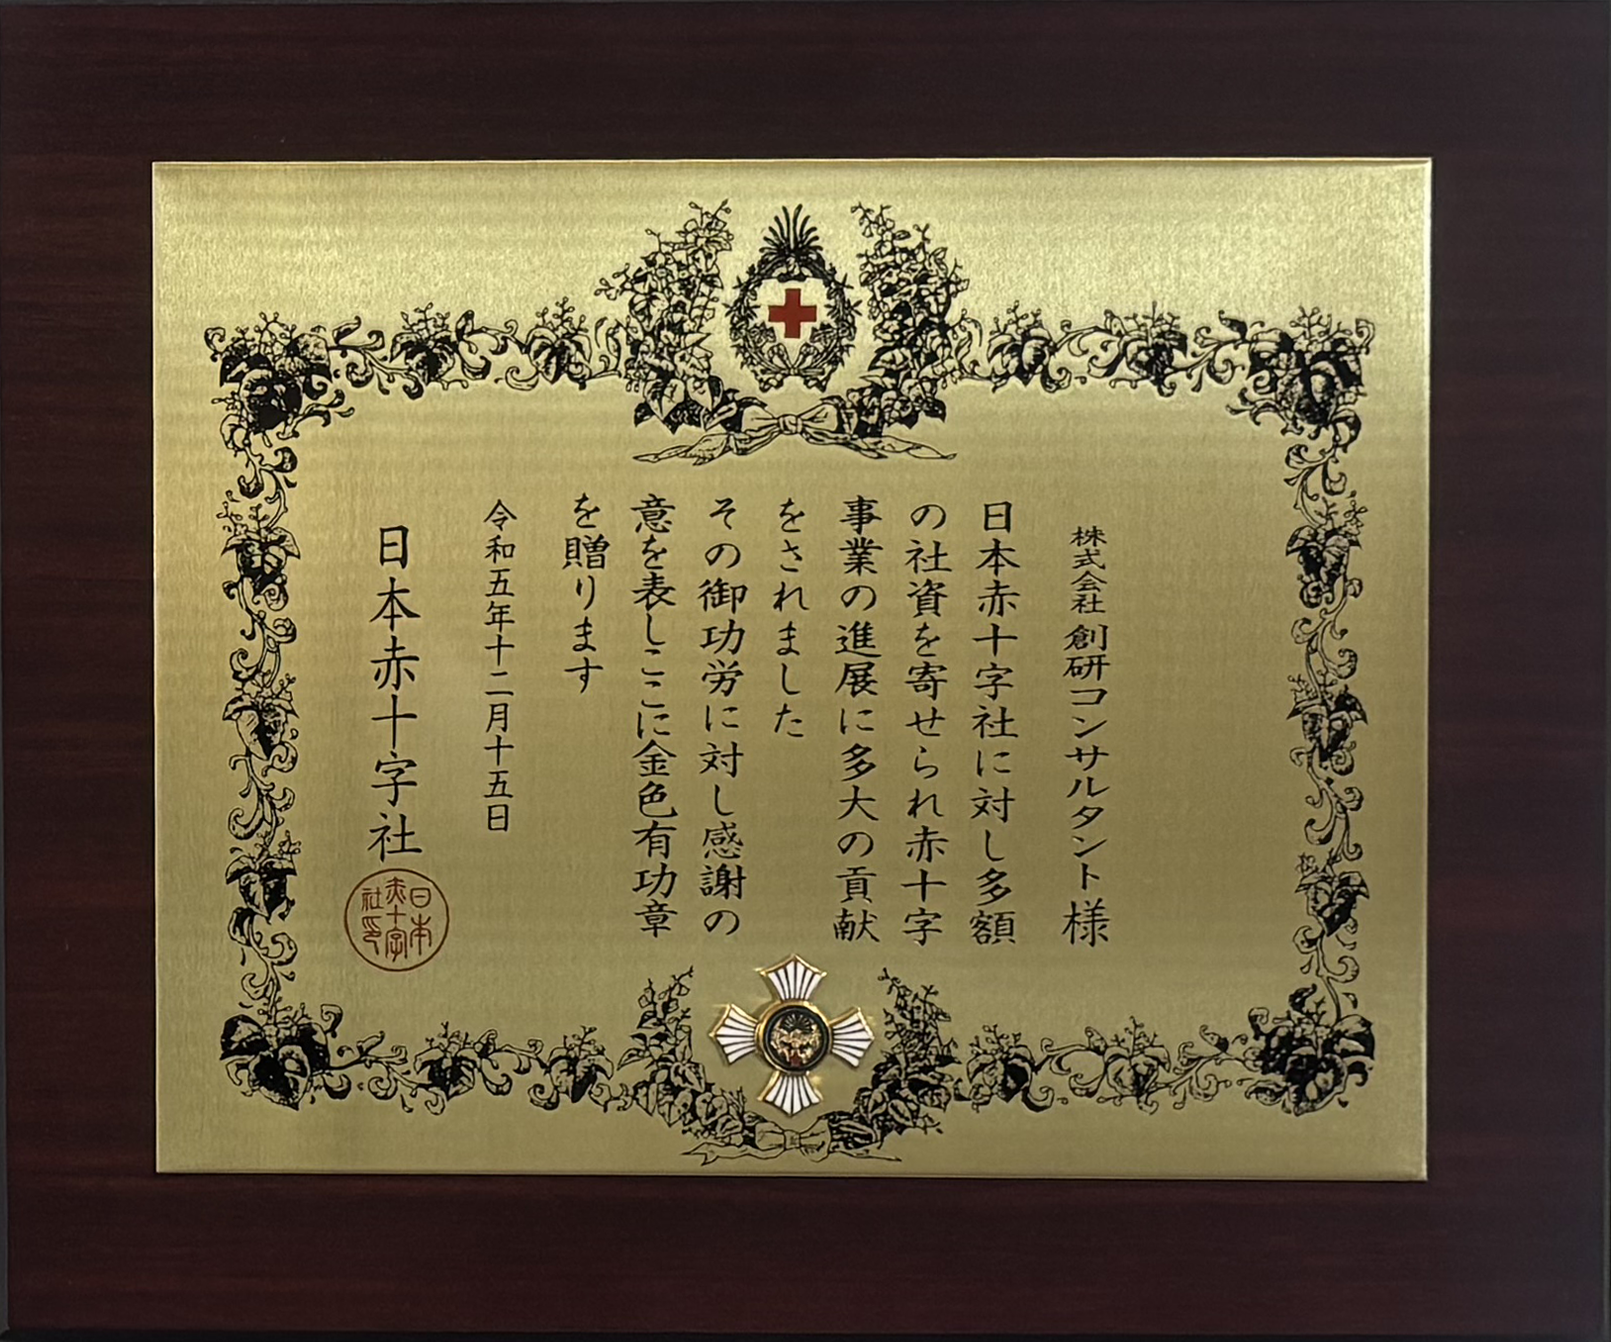 株式会社 創研コンサルタント 様
日本赤十字社に対し多額
の社資を寄せられ赤十字
事業の進展に多大の貢献
をされました
その御功労に対し感謝の
意を表しここに金色有功章
を贈ります
令和五年十二月十五日
日本赤十字社
日本
赤十字
社印